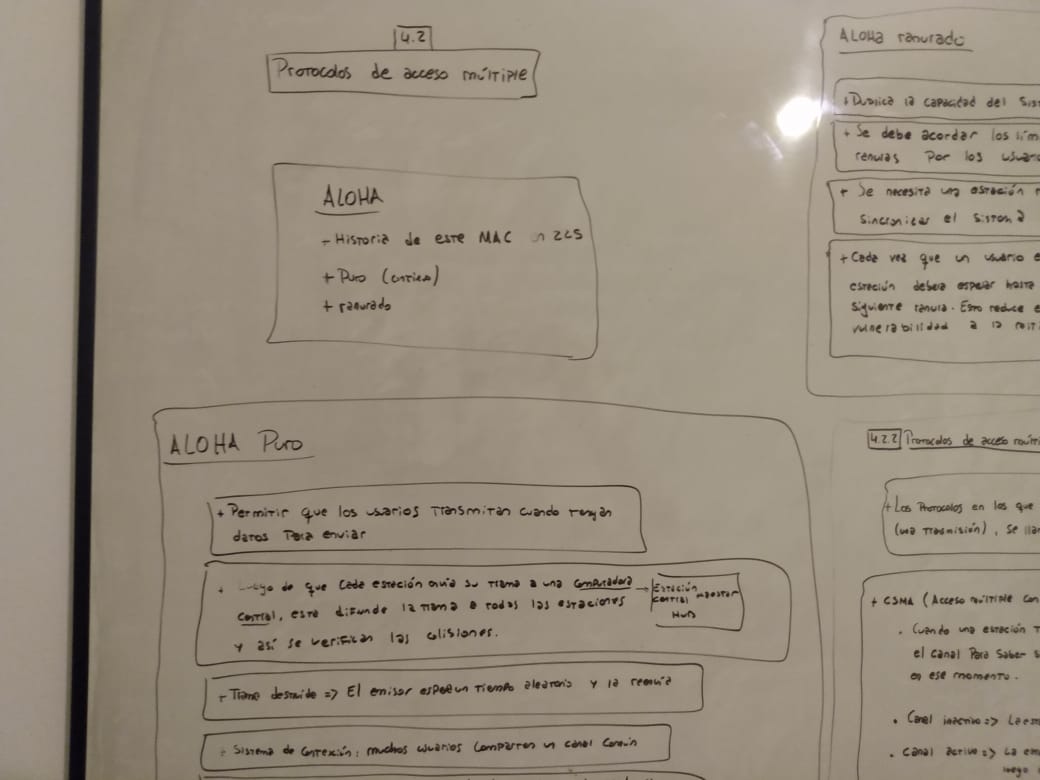 4.2
Protocolos de acceso múltiple
ALOHA
+ Historia de este MAC en 225
+ Puro
+ ranurado
ALOHA Puro
+ Permitir que los usuarios transmitan cuando tengan
datos para enviar
+ Luego de que cada estación envía su trama a una computadora
central, esta difunde la trama a todas las estaciones
y así se verifican las colisiones.
→ Estación
central maestar
HUB
+ Trama destruida => El emisor espera un tiempo aleatorio y la reenvía
+ Sistema de contención: muchos usuarios comparten un canal común
ALOHA ranurado
+ Duplica la capacidad del sis
+ Se debe acordar los lím
ranuras por los usuar
+ Se necesita una estación
sincronizar el sistema
+ Cada vez que un usuario e
estación debera esperar hasta
siguiente ranura. Esto reduce e
vulnerabilidad a la mit
4.2.2 Protocolos de acceso múlti
+ Los protocolos en los que
(una trasmisión), se lla
+ CSMA (Acceso múltiple con
. Cuando una estación t
el canal para saber s
en ese momento.
. Canal inactivo => La est
. Canal activo => La em
luego